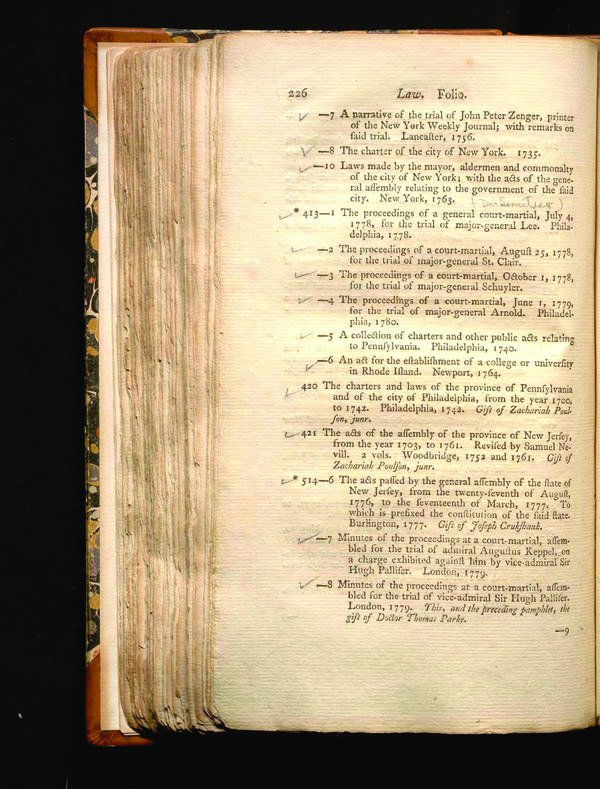 226 Law. Folio.
—7 A narrative of the trial of John Peter Zenger, printer
of the New York Weekly Journal; with remarks on
ſaid trial. Lancaſter, 1756.
—8 The charter of the city of New York. 1735.
—10 Laws made by the mayor, aldermen and commonalty
of the city of New York; with the acts of the gene-
ral aſſembly relating to the government of the ſaid
city. New York, 1763.
* 413—1 The proceedings of a general court-martial, July 4,
1778, for the trial of major-general Lee. Phila-
delphia, 1778.
—2 The proceedings of a court-martial, Auguſt 25, 1778,
for the trial of major-general St. Clair.
—3 The proceedings of a court-martial, October 1, 1778,
for the trial of major-general Schuyler.
—4 The proceedings of a court-martial, June 1, 1779,
for the trial of major-general Arnold. Philadel-
phia, 1780.
—5 A collection of charters and other public acts relating
to Pennſylvania. Philadelphia, 1740.
—6 An act for the eſtabliſhment of a college or univerſity
in Rhode Iſland. Newport, 1764.
420 The charters and laws of the province of Pennſylvania
and of the city of Philadelphia, from the year 1700,
to 1742. Philadelphia, 1742. Gift of Zachariah Poul-
ſon, junr.
421 The acts of the aſſembly of the province of New Jerſey,
from the year 1703, to 1761. Reviſed by Samuel Ne-
vill. 2 vols. Woodbridge, 1752 and 1761. Gift of
Zachariah Poulſon, junr.
* 514—6 The acts paſſed by the general aſſembly of the ſtate of
New Jerſey, from the twenty-ſeventh of Auguſt,
1776, to the ſeventeenth of March, 1777. To
which is prefixed the conſtitution of the ſaid ſtate.
Burlington, 1777. Gift of Joſeph Crukſhank.
—7 Minutes of the proceedings at a court-martial, aſſem-
bled for the trial of admiral Auguſtus Keppel, on
a charge exhibited againſt him by vice-admiral Sir
Hugh Palliſer. London, 1779.
—8 Minutes of the proceedings at a court-martial, aſſem-
bled for the trial of vice-admiral Sir Hugh Palliſer.
London, 1779. This, and the preceding pamphlet, the
gift of Doctor Thomas Parke.
—9